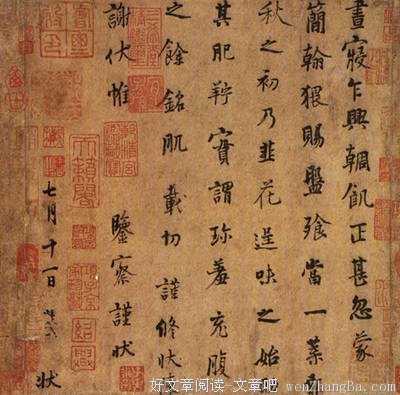 晝寢乍興輖飢正甚忽蒙
簡翰猥賜盤飧當一葉
秋之初乃韭花逞味之始
其肥羜實謂珍羞充腹
之餘銘肌載切謹修狀
謝伏惟
鑒察謹狀
七月十一日 狀
天籟閣
紹興
好文章阅读-文章吧 wenZhangBa.com